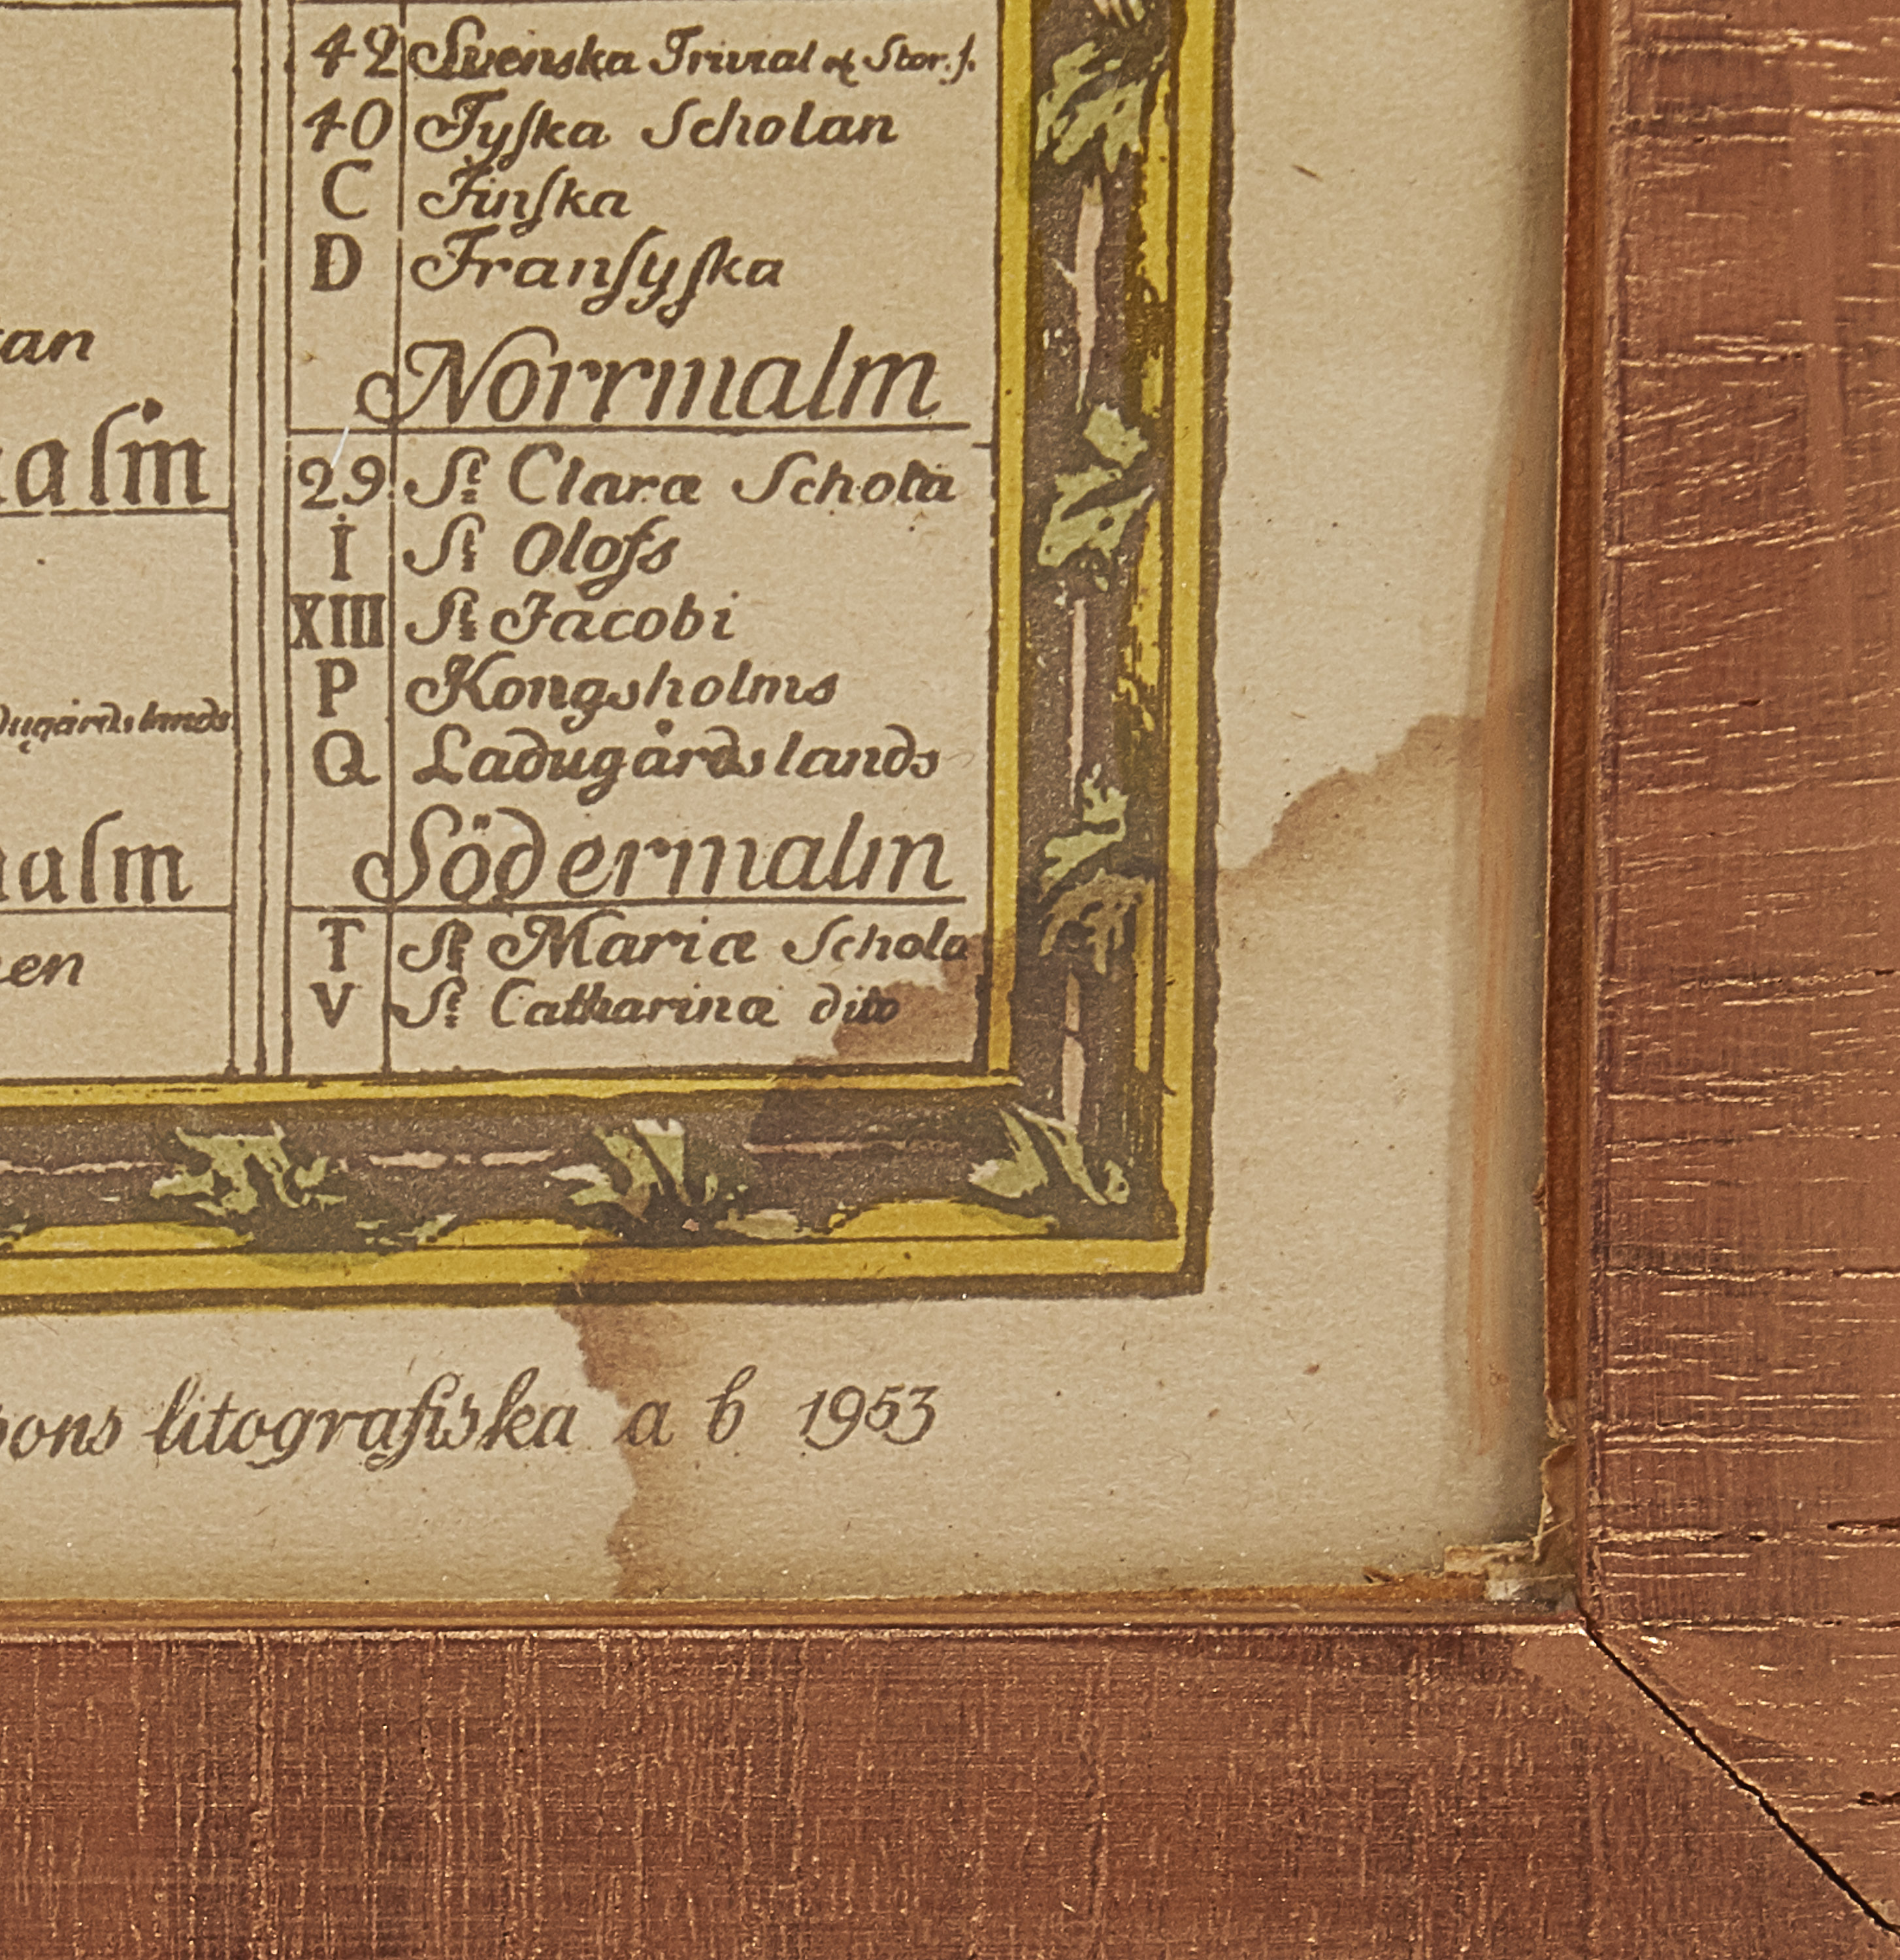 42 Svenska Trivial och Stor.s.
40 Tyska Scholan
C Finska
D Fransyska
Norrmalm
29 St Claræ Schola
I St Olofs
XIII St Jacobi
P Kongsholms
Q Ladugårdslands
Södermalm
T St Mariæ Schola
V St Catharinæ dito
litografiska a b 1953